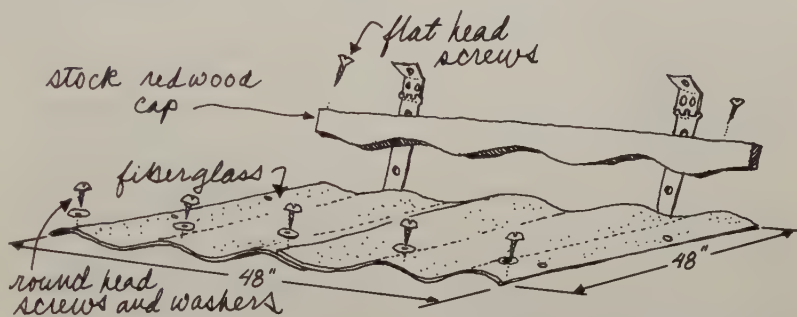 flat head
screws
stock redwood
cap
fiberglass
48"
48"
round head
screws and washers